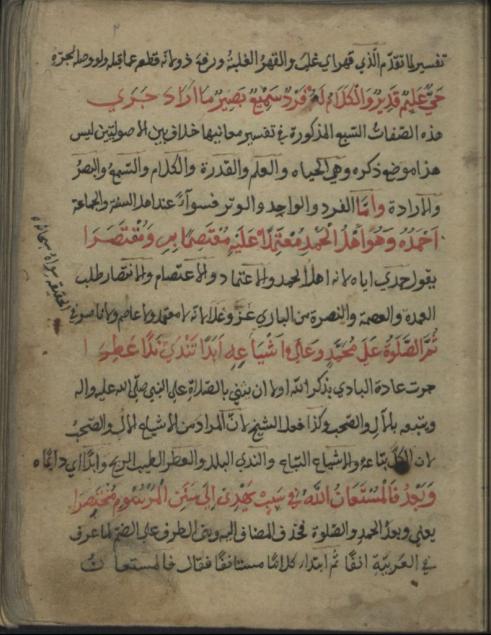 تفسير لما تقدم الذي قهر اي غلب والقهر الغلبة ورفع
حي عليم قدير والكلام له فرد سميع بصير ما اراد جرى
هذه الصفات السبع المذكورة في تفسير معانيها خلاف بين الاصوليين ليس
هذا موضع ذكره وهي الحياه والعلم والقدرة والكلام والسمع والبصر
والارادة واما الفرد والواحد والوتر فسواء عند اهل السنة والجماعة
احمده وهو اهل الحمد معتمدا عليه معتصما به ومنتصرا
يقول حمدي اياه لانه اهل الحمد والاعتماد والاعتصام والانتصار طلب
العمدة والعصمة والنصرة من الباري عز وعلا لانه لا معتمد ولا عاصم ولا ناصر في
الحقيقة سواه سبحانه
ثم الصلوة على محمد وعلى اشياعه ابدا تندى ندا عطرا
جرت عادة البادي بذكر الله اولا ان يثني بالصلاة على النبي صلى الله عليه واله
ويتبعه بالال والصحب وكذا فعل الشيخ لان المراد من الاشياع الال والصحب
لان الكل تباعه والاشياع التباع والندى البلل والعطر الطيب الريح وابدا اي دائما
وبعد فالمستعان الله في سبب يهدي الى سنن المرسوم مختصرا
يعني وبعد الحمد والصلوة فحذف المضاف اليه وبنى الطرف على الضم لما عرف
في العربية انفا ثم ابتدا كلاما مستانفا فقال فالمستعان